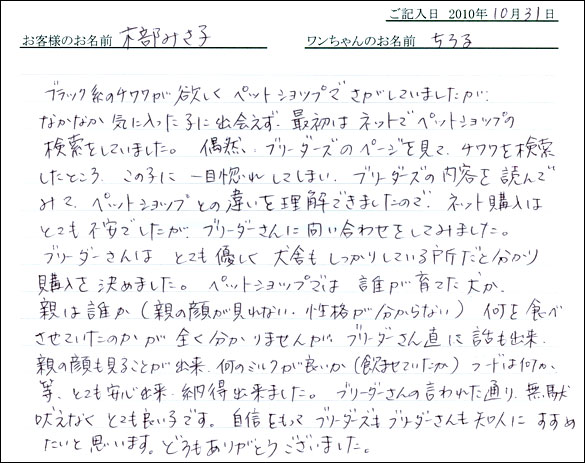 ご記入日 2010年10月31日
お客様のお名前 木部みさ子 ワンちゃんのお名前 ちろる
ブラック系のチワワが欲しく ペットショップでさがしていましたが、
なかなか気に入った子に出会えず、最初はネットでペットショップの
検索をしていました。 偶然、ブリーダーズのページを見て、チワワを検索
したところ、この子に一目惚れしてしまい、ブリーダーズの内容を読んで
みて、ペットショップとの違いを理解できましたので、ネット購入は
とても不安でしたが、ブリーダーさんに問い合わせをしてみました。
ブリーダーさんは とても優しく 犬舎もしっかりしている所だと分かり
購入を決めました。 ペットショップでは 誰が育てた犬か、
親は誰か(親の顔が見れない・性格が分からない) 何を食べ
させていたのかが 全く分かりませんが、ブリーダーさん直に話も出来、
親の顔も見ることが出来、何のミルクが良いか(飲ませていたか)フードは何か、
等、とても安心出来・納得出来ました。 ブリーダーさんの言われた通り、無駄
吠えなく とても良い子です。 自信をもって ブリーダーズもブリーダーさんも知人に すすめ
たいと思います。どうもありがとうございました。